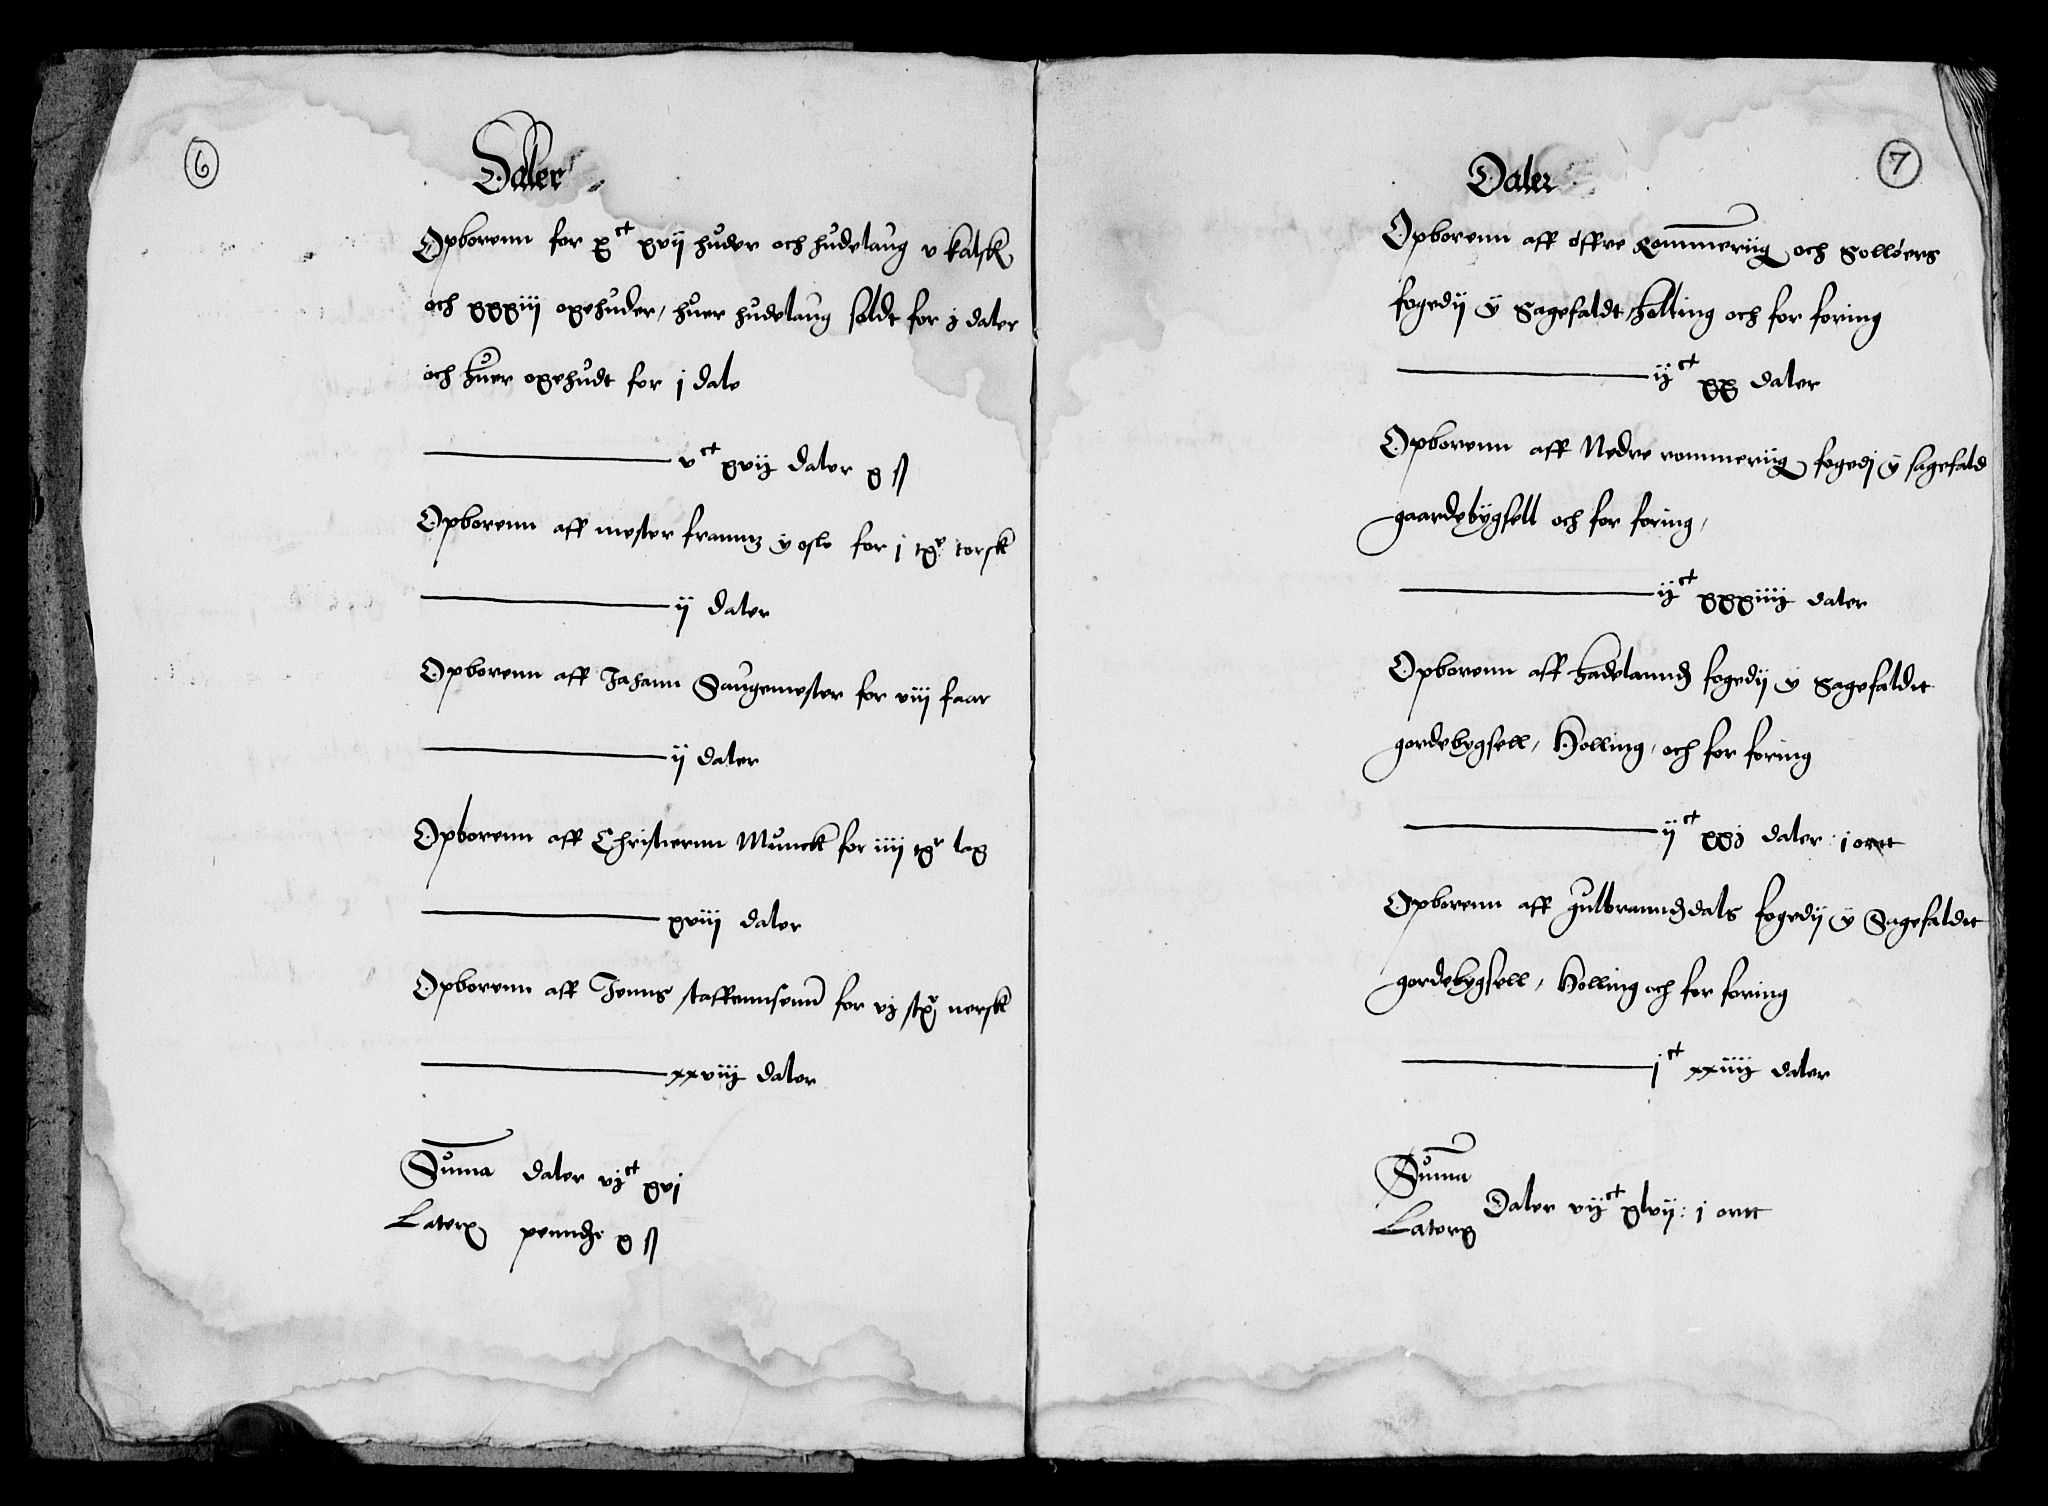 6
Daler
Opborenn for x ct xvij huder och hudelaug v kalsk
och xxxiij oxehuder, huer hudelaug soldt for j daler
och huer oxehudt for j dale
v ct xvij daler x ß
Opborenn aff mester franntz y oslo for j tØr torsk
ij daler
Opborenn aff Johann Saugemester for viij faar
ij daler
Opborenn aff Christiernn Munck for iiij tØr lax
xviij daler
Opborenn aff Jenns staffennsenn for vj stØr nersk
xxviij daler
Suma daler vj ct xvj
Laterx penndge x ß
7
Daler
Opborenn aff öffre Rommeriig och Solløers
fogedij y Sagefaldt, holling och for foring
ij ct xx daler
Opborenn aff Nedre rommeriig fogedj y sagefald
gaardebygsell och for foring,
ij ct xxxiiij daler
Opborenn aff hadelanndz fogedij y Sagefaldtt
gordebygsell, Holling, och for foring
ij ct xxj daler j ortt
Opborenn aff gulbranndzdals fogedij y Sagefaldtt
gordebygsell, Holling och for foring
j ct xxiiij daler
Suma
Daler vij ct xlvij: j ortt
Laterx